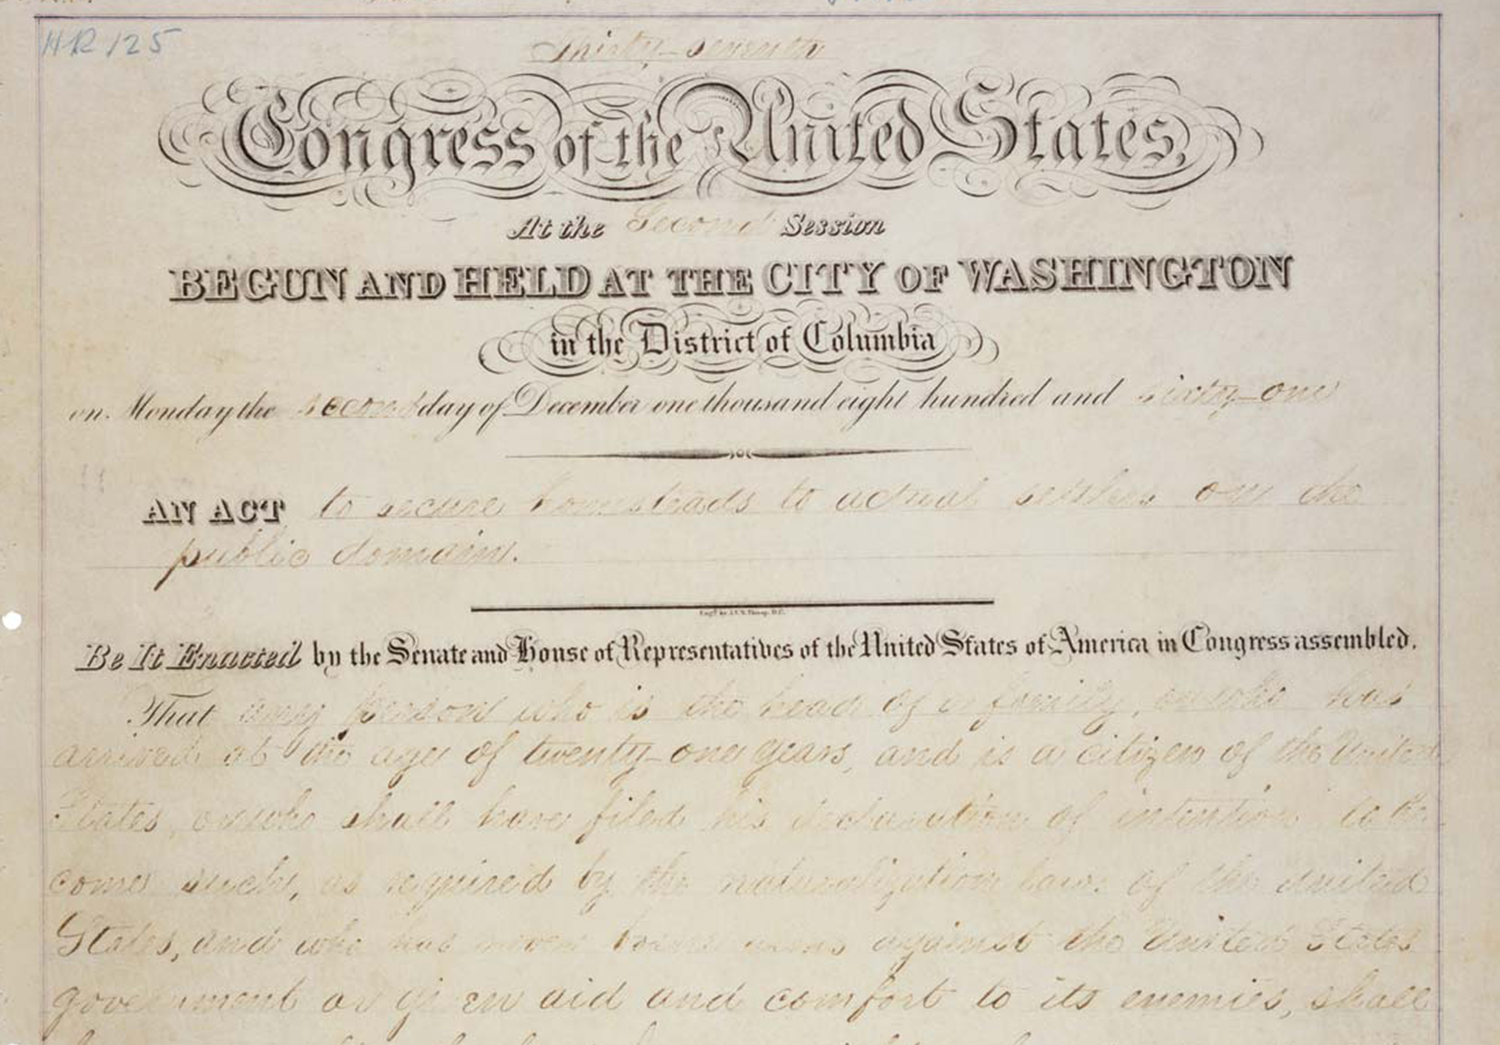 HR 125
Thirty-Seventh
Congress of the United States,
At the Second Session
BEGUN AND HELD AT THE CITY OF WASHINGTON
in the District of Columbia
on Monday the second day of December one thousand eight hundred and sixty-one
AN ACT to secure homesteads to actual settlers on the
public domain.
Be It Enacted by the Senate and House of Representatives of the United States of America in Congress assembled,
That any person who is the head of a family, or who has
arrived at the age of twenty-one years, and is a citizen of the United
States, or who shall have filed his declaration of intention to be
come such, as required by the naturalization laws of the United
States, and who has never borne arms against the United States
government or given aid and comfort to its enemies, shall